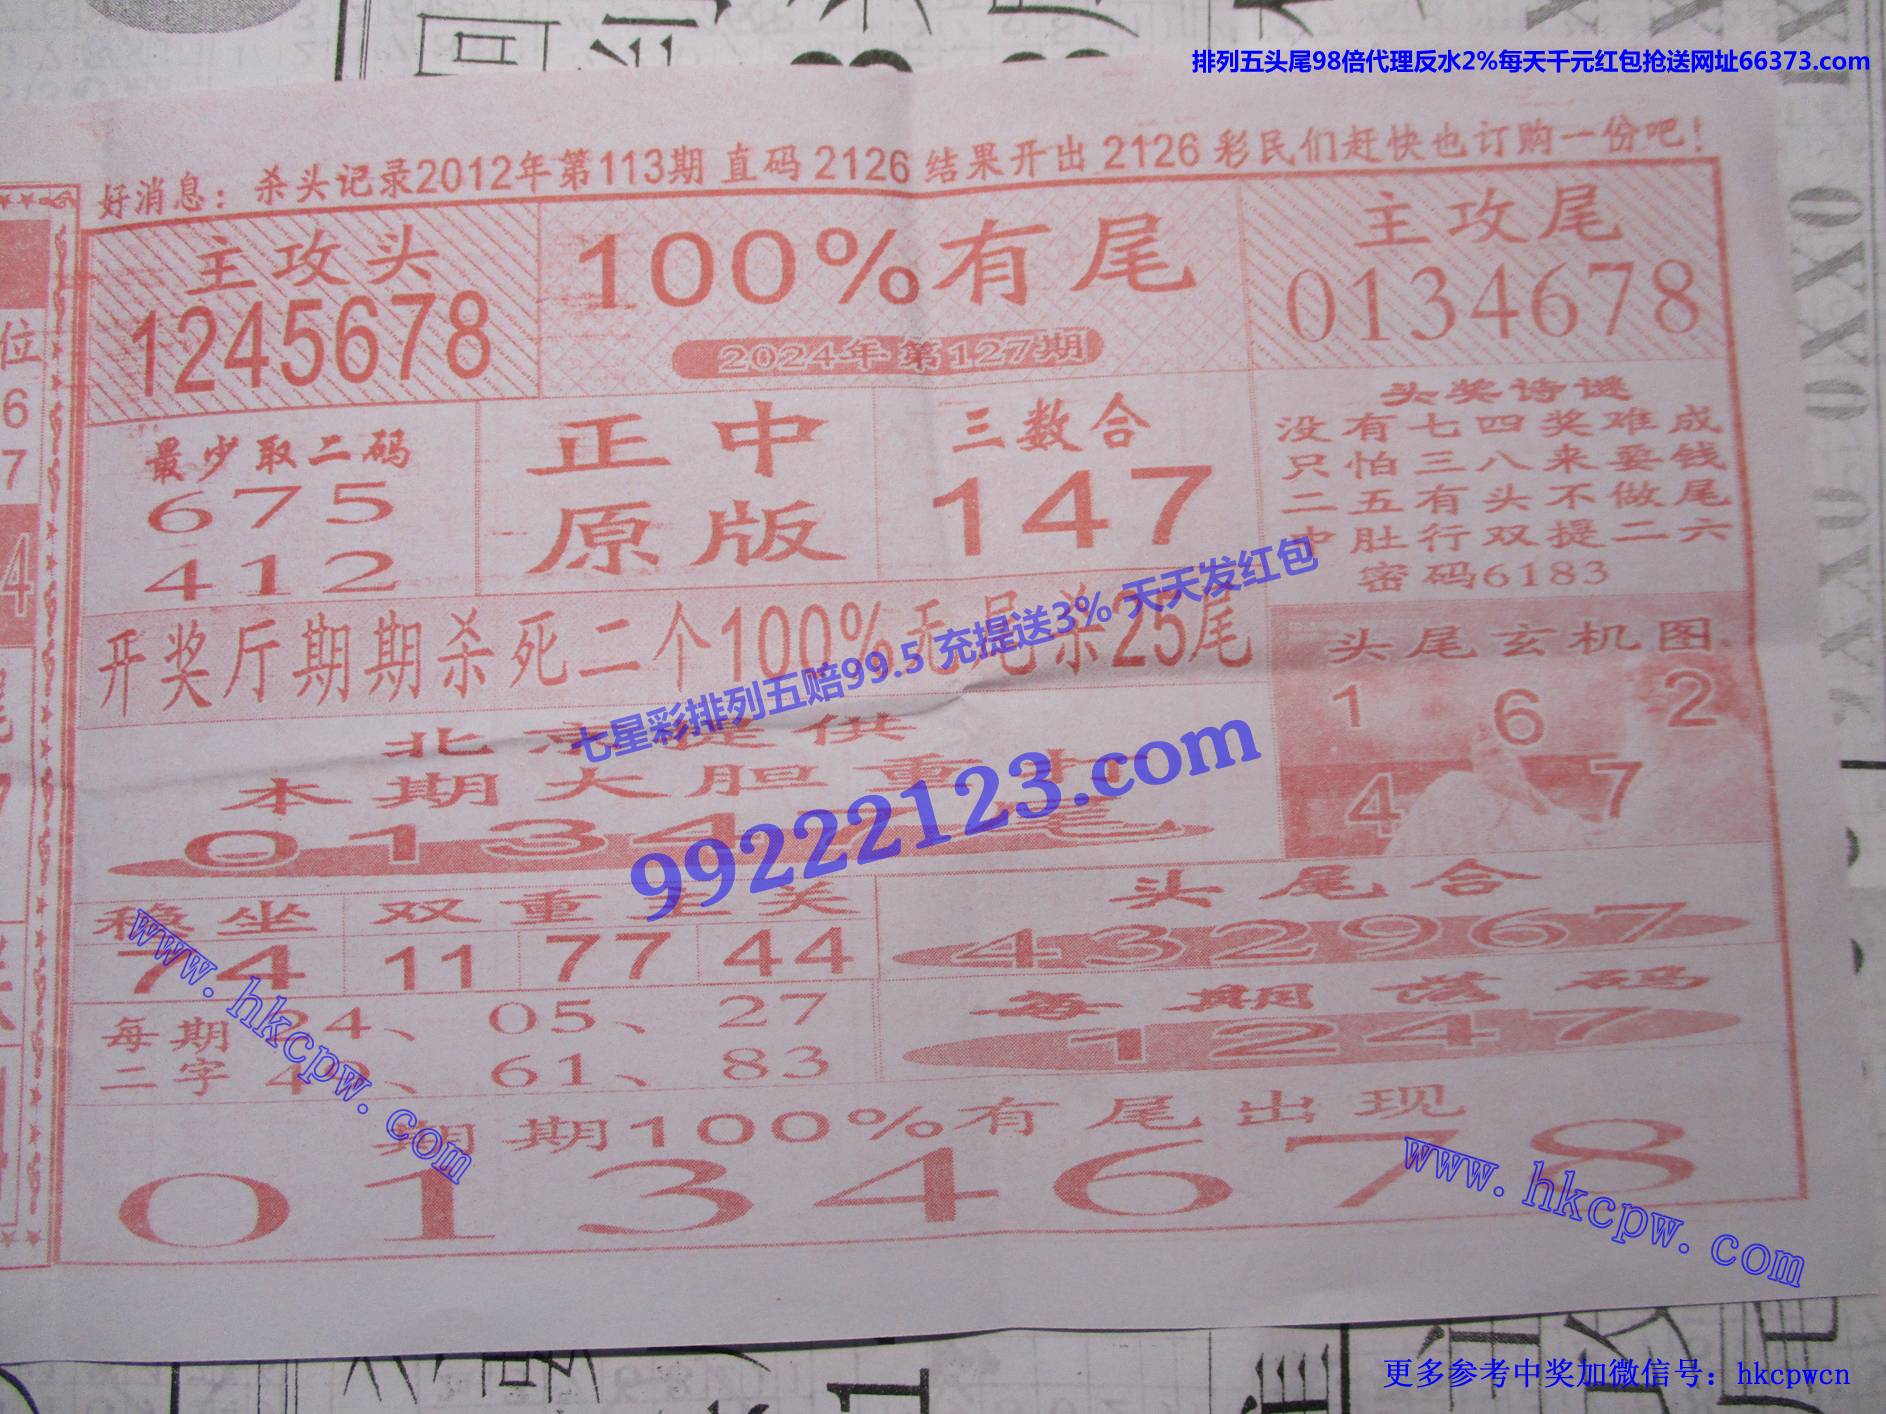 排列五头尾98倍代理反水2%每天千元红包抢送网址66373.com
好消息：杀头记录2012年第113期 直码 2126 结果开出 2126 彩民们赶快也订购一份吧！
主攻头
1245678
100%有尾
2024年第127期
主攻尾
0134678
最少取二码
675
412
正中
原版
三数合
147
头奖诗谜
没有七四奖难成
只怕三八来要钱
二五有头不做尾
中肚行双提二六
密码6183
开奖厅期期杀死二个100%无尾杀25尾
七星彩排列五赔99.5 充提送3% 天天发红包
99222123.com
头尾玄机图
1 6 2
4 7
北京提供
本期大胆重
0134 尾
稳坐
74
双重
关
11 77 44
头尾合
432967
每期
二字
24、 05、 27
61、 83
每期落码
1247
期期100%有尾出现
0134678
www.hkcpw.com
www.hkcpw.com
更多参考中奖加微信号：hkcpwcn
位
6
7
4